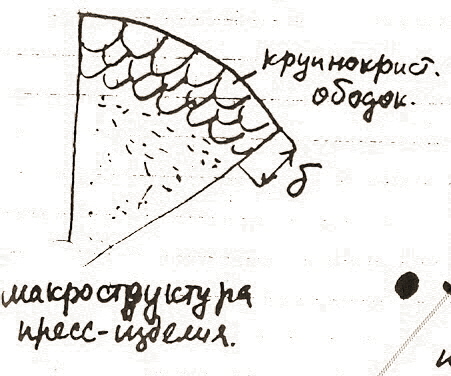 крупнокрист.
ободок.
б
макроструктура
пресс-изделия.